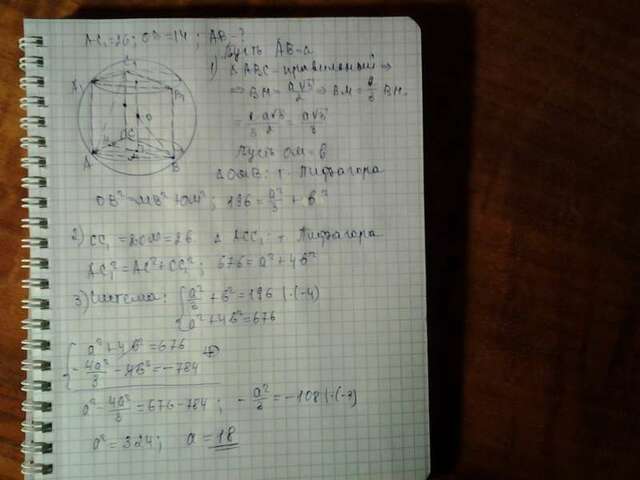 AC₁=26; OB=14; AB-?
Пусть AB=a
1) △ABC - правильный ⇒
⇒ BH = a√3/2 ⇒ BM = 2/3 BH
= 2/3 · a√3/2 = a√3/3
Пусть OM = b
△OMB: т. Пифагора
OB² = MB² + OM²; 196 = a²/3 + b²
2) CC₁ = 2OM = 2b △ACC₁: т Пифагора
AC₁² = AC² + CC₁²; 676 = a² + 4b²
3) Система: { a²/3 + b² = 196 | ·(-4)
a² + 4b² = 676
{ a² + 4b² = 676 +
- 4a²/3 - 4b² = -784
a² - 4a²/3 = 676 - 784; - a²/3 = -108 | ·(-3)
a² = 324; a = 18
A₁
C₁
B₁
O
C
A
M
B